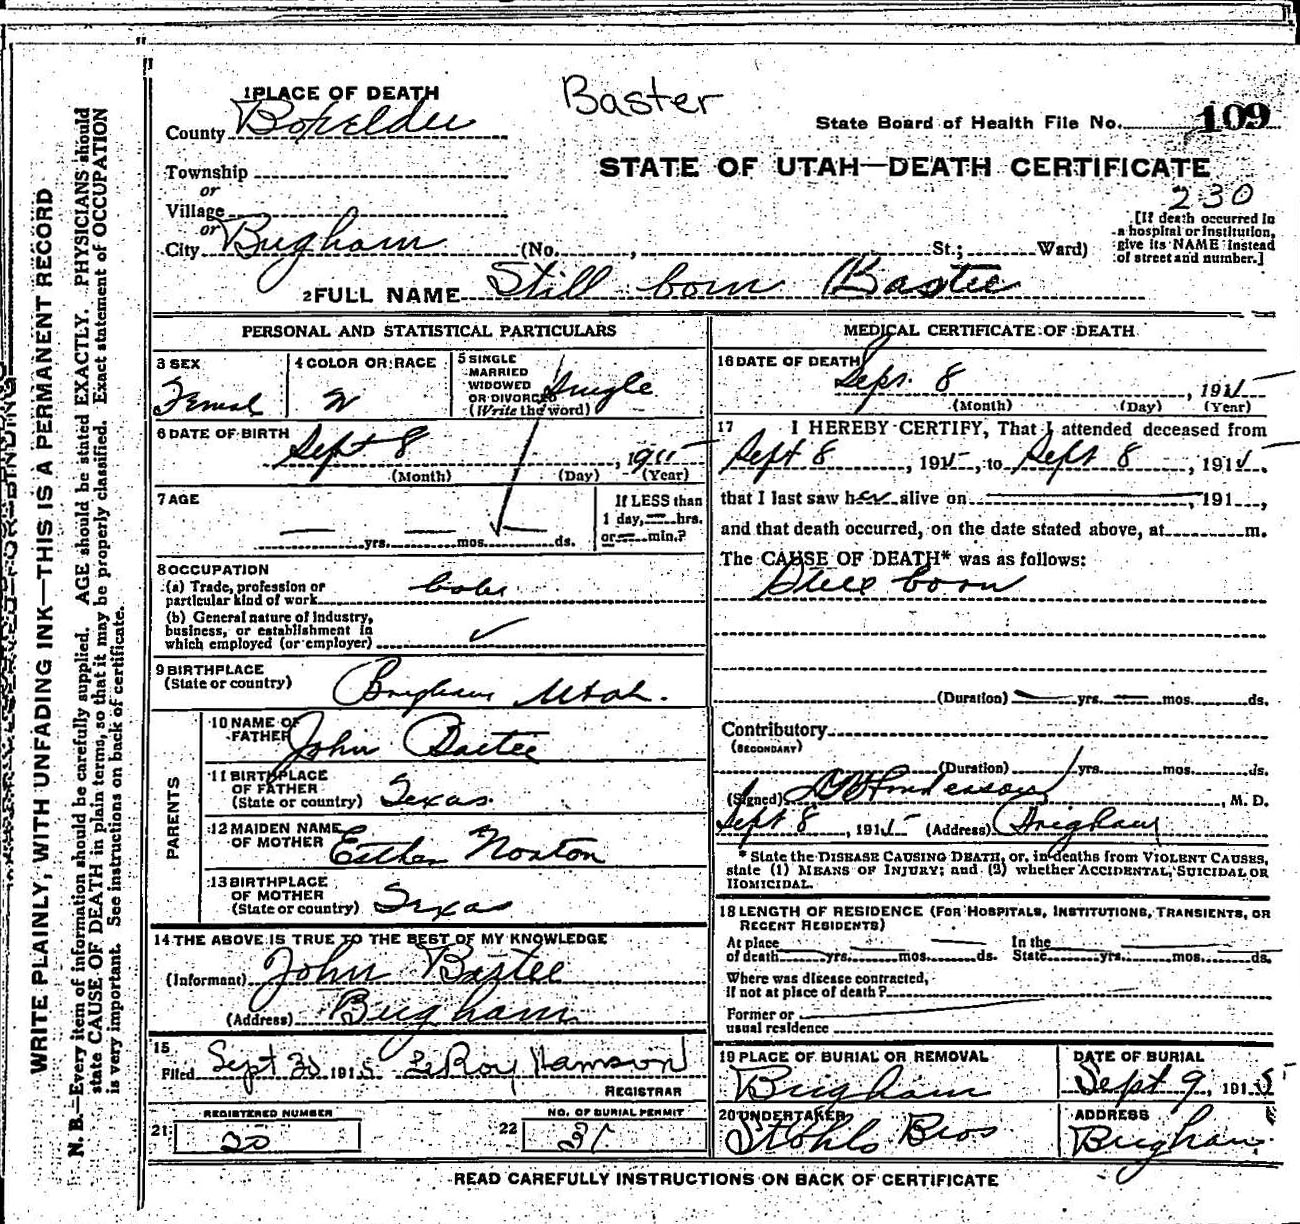 Baster
1 PLACE OF DEATH
County Boxelder
State Board of Health File No. 109
STATE OF UTAH—DEATH CERTIFICATE
230
Township
or
Village
or
City Brigham (No. , St.; Ward)
[If death occurred in
a hospital or institution,
give its NAME instead
of street and number.]
2 FULL NAME Still born Bastee
PERSONAL AND STATISTICAL PARTICULARS
3 SEX
Femal
4 COLOR OR RACE
W
5 SINGLE
MARRIED
WIDOWED
OR DIVORCED
(Write the word)
Single
6 DATE OF BIRTH
Sept 8, 1915
(Month) (Day) (Year)
7 AGE
yrs. mos. ds.
If LESS than
1 day, — hrs.
or — min.?
8 OCCUPATION
(a) Trade, profession or
particular kind of work
(b) General nature of industry,
business, or establishment in
which employed (or employer)
9 BIRTHPLACE
(State or country)
Brigham Utah.
PARENTS
10 NAME OF
FATHER
John Bastee
11 BIRTHPLACE
OF FATHER
(State or country) Texas
12 MAIDEN NAME
OF MOTHER
Esther Norton
13 BIRTHPLACE
OF MOTHER
(State or country) Texas
14 THE ABOVE IS TRUE TO THE BEST OF MY KNOWLEDGE
(Informant) John Bastee
(Address) Brigham
15
Filed Sept 30 1915
REGISTRAR
REGISTERED NUMBER
21 20
NO. OF BURIAL PERMIT
22
MEDICAL CERTIFICATE OF DEATH
16 DATE OF DEATH
Sept. 8, 1915
(Month) (Day) (Year)
17 I HEREBY CERTIFY, That I attended deceased from
Sept 8, 1915, to Sept 8, 1915.
that I last saw her alive on , 191 ,
and that death occurred, on the date stated above, at m.
The CAUSE OF DEATH* was as follows:
Still born
(Duration) yrs. mos. ds.
Contributory
(SECONDARY)
(Duration) yrs. mos. ds.
(Signed) , M. D.
Sept 8, 1915 (Address) Brigham
* State the DISEASE CAUSING DEATH, or, in deaths from VIOLENT CAUSES,
state (1) MEANS OF INJURY; and (2) whether ACCIDENTAL, SUICIDAL OR
HOMICIDAL.
18 LENGTH OF RESIDENCE (FOR HOSPITALS, INSTITUTIONS, TRANSIENTS, OR
RECENT RESIDENTS)
At place In the
of death yrs. mos. ds. State yrs. mos. ds.
Where was disease contracted,
if not at place of death?
Former or
usual residence
19 PLACE OF BURIAL OR REMOVAL
Brigham
DATE OF BURIAL
Sept 9, 1915
20 UNDERTAKER
Stohls Bros
ADDRESS
Brigham
READ CAREFULLY INSTRUCTIONS ON BACK OF CERTIFICATE
WRITE PLAINLY, WITH UNFADING INK—THIS IS A PERMANENT RECORD
N. B.—Every item of information should be carefully supplied. AGE should be stated EXACTLY. PHYSICIANS should
state CAUSE OF DEATH in plain terms, so that it may be properly classified. Exact statement of OCCUPATION
is very important. See instructions on back of certificate.